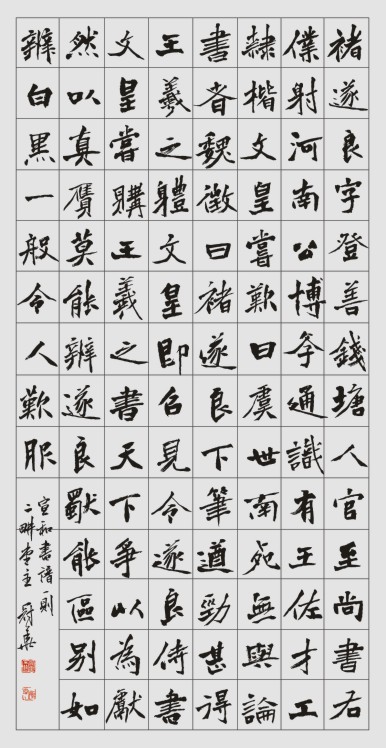 褚遂良字登善錢塘人官至尚書右
僕射河南公博斈通識有王佐才工
隸楷文皇嘗歎曰虞世南死無與論
書者魏徵曰褚遂良下筆遒勁甚得
王羲之體文皇即召見令遂良侍書
文皇嘗購王羲之書天下爭以為獻
然以真贋莫能辨遂良獨能區別如
辨白黑一般令人歎服
宣和書譜一則
二畊堂主